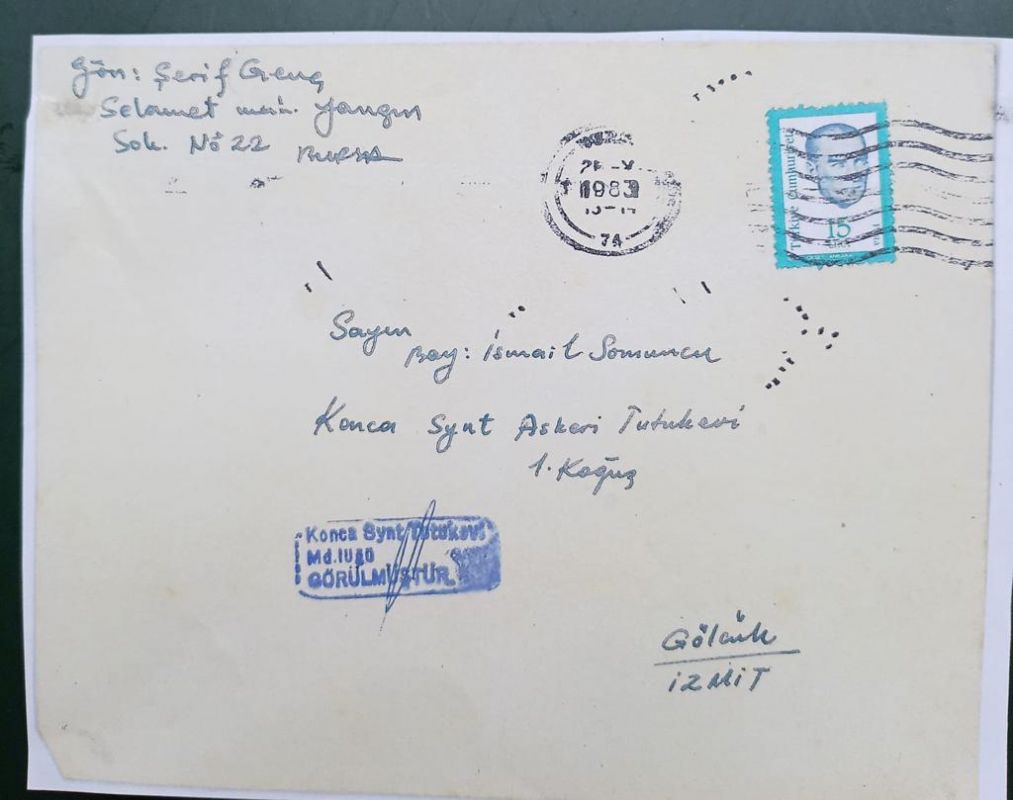 Gön: Şerif Genç
Selamet mah. Yangın
Sok. No 22 BURSA
1983
74
Türkiye Cumhuriyeti
15
LİRA
Sayın
Bay: İsmail Somuncu
Konca Synt Askeri Tutukevi
1. Koğuş
Konca Synt Tutukevi
Md.lüğü
GÖRÜLMÜŞTÜR
Gölcük
İZMİT